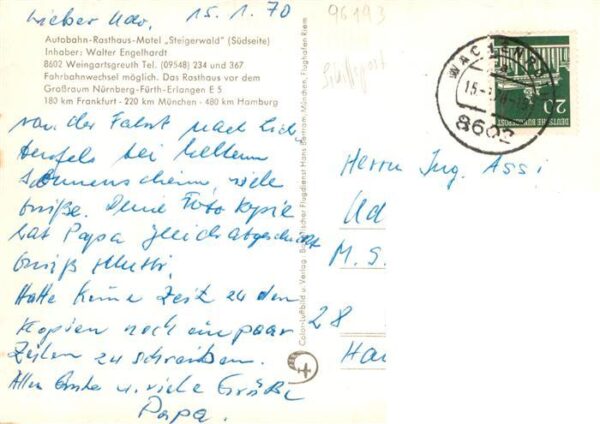 Lieber Udo,
15.1.70
96193
Autobahn-Rasthaus-Motel „Steigerwald" (Südseite)
Inhaber: Walter Engelhardt
8602 Weingartsgreuth Tel. (09548) 234 und 367
Fahrbahnwechsel möglich. Das Rasthaus vor dem
Großraum Nürnberg-Fürth-Erlangen E 5
180 km Frankfurt - 220 km München - 480 km Hamburg
von der Fahrt nach Lich
tenfels bei hellem
Sonnenschein, viele
Grüße. Deine Foto Kopie
hat Papa gleich abgeschickt
Gruß Mutti.
Hatte keine Zeit zu den
Kopien noch ein paar
Zeilen zu schreiben.
Alles Gute u. viele Grüße
Papa.
Color-Luftbild u. Verlag: Bayerischer Flugdienst Hans Bertram, München, Flughafen Riem
20
DEUTSCHE BUNDESPOST
8602
Herrn Ing. Assi
Ud
M. S.
28
Ha